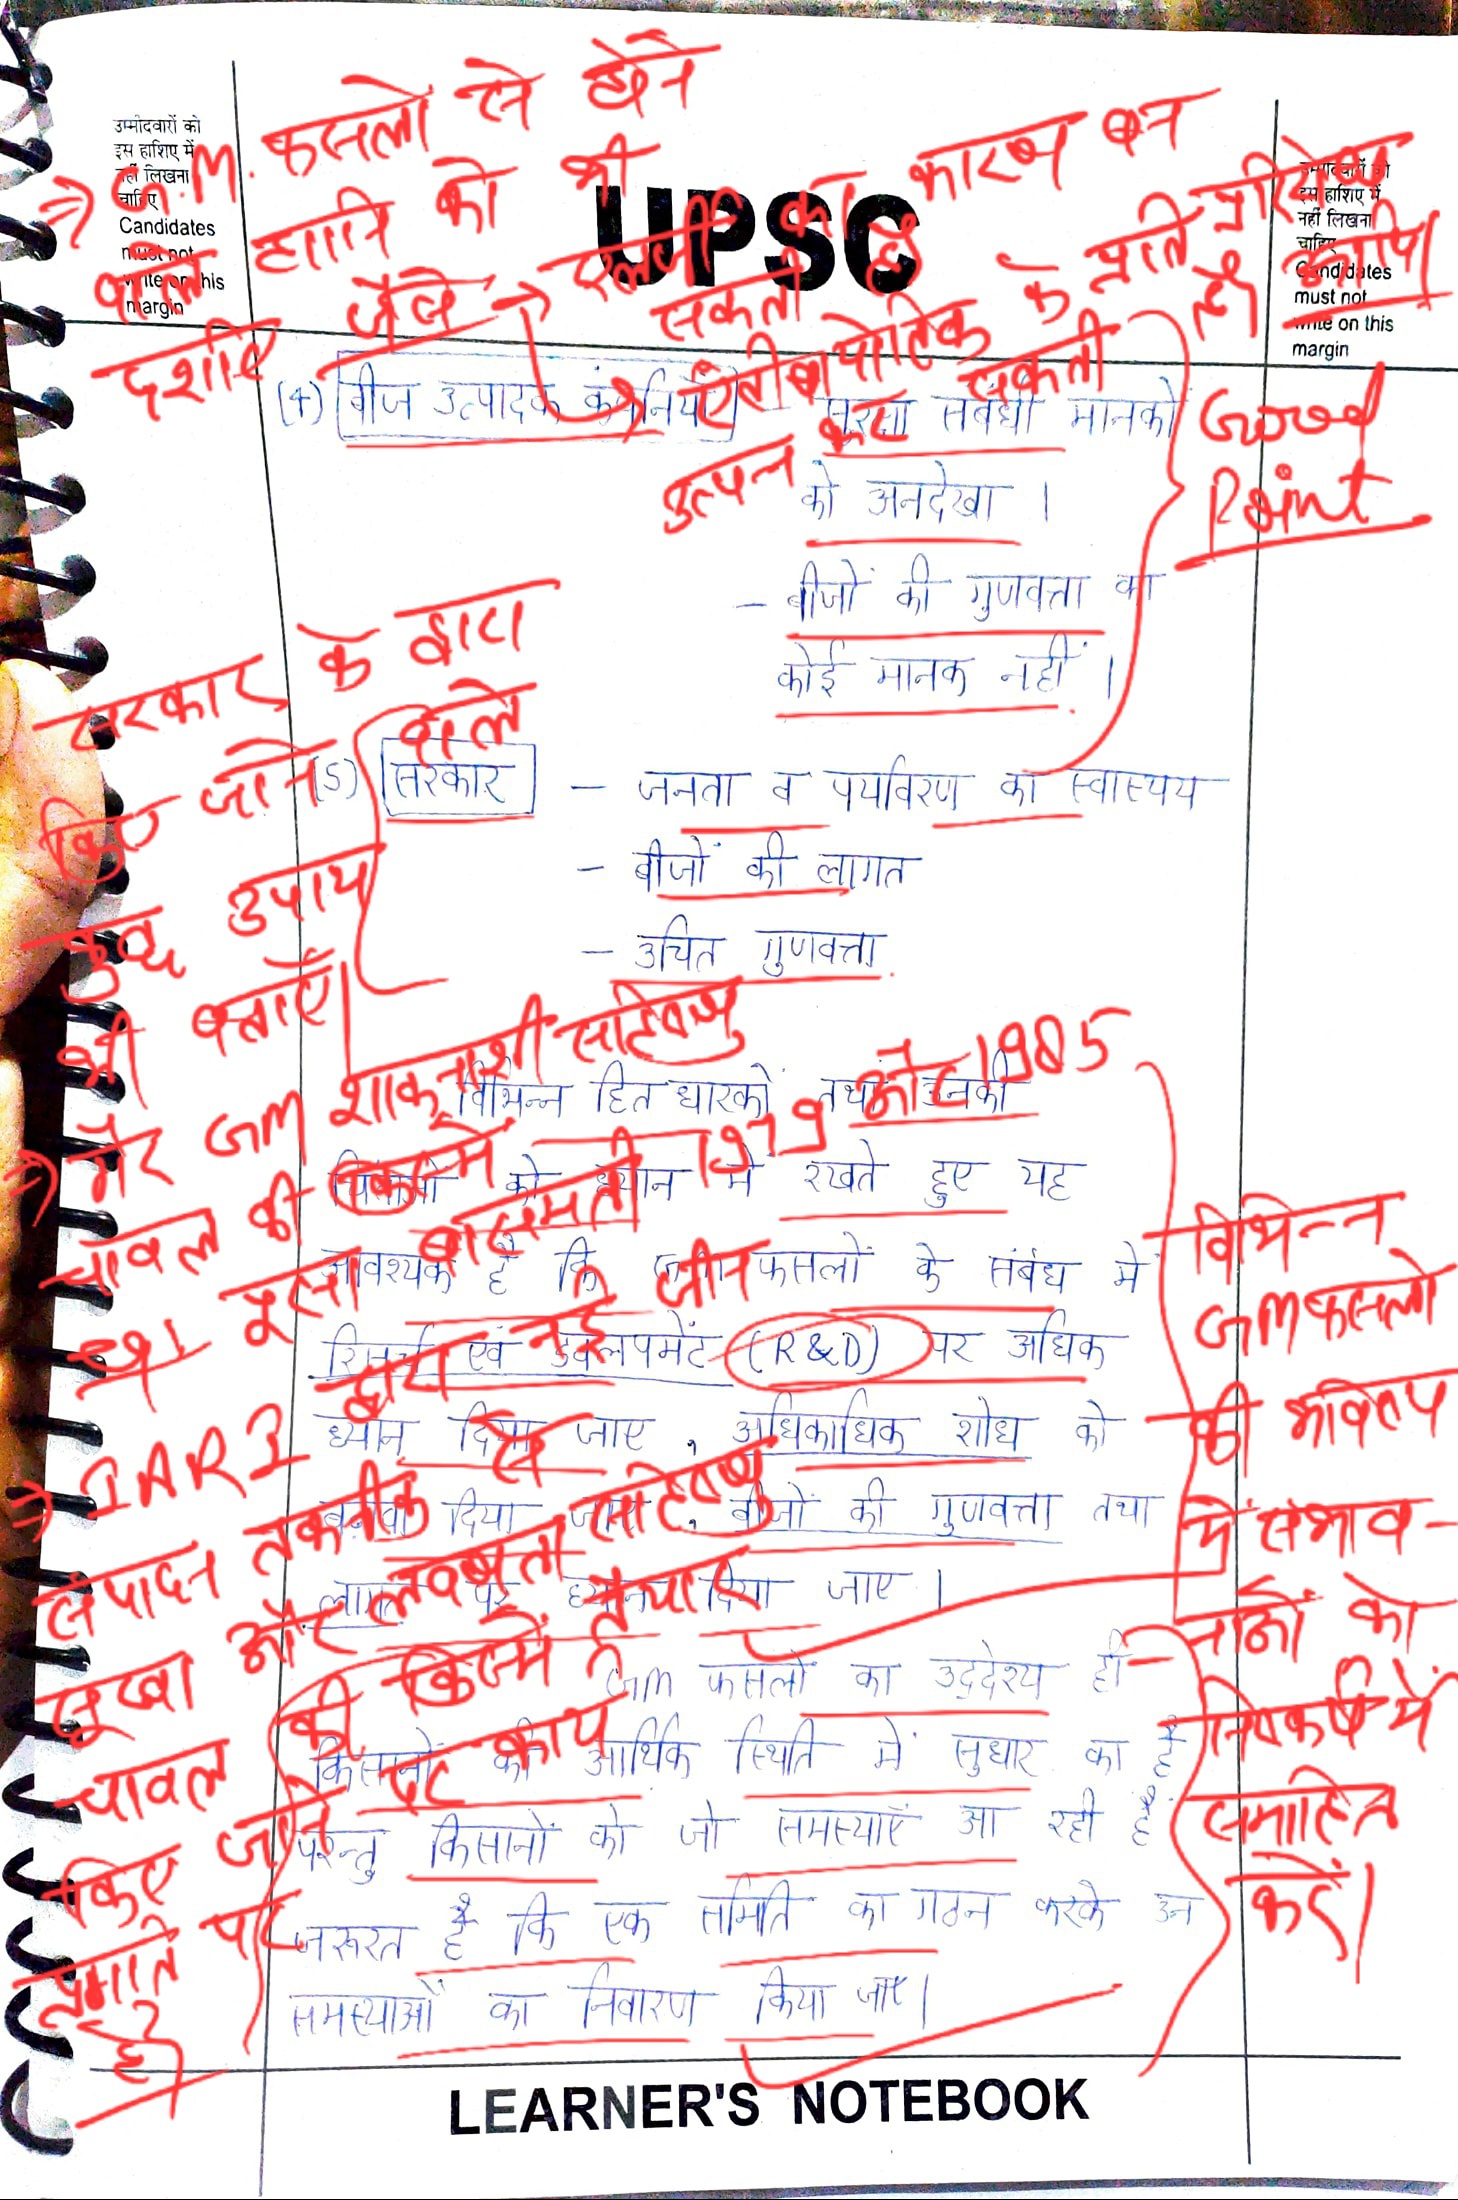 उम्मीदवारों को
इस हाशिए में
नहीं लिखना
चाहिए
Candidates
must not
write on this
margin
UPSC
उम्मीदवारों को
इस हाशिए में
नहीं लिखना
चाहिए
Candidates
must not
write on this
margin
⇒ G.M. फसलों से होने
वाले हानि को भी
दर्शाएं जैसे → एलर्जी का कारण बन
सकती है
→ एंटीबायोटिक के प्रति प्रतिरोध
उत्पन्न कर सकती हैं आदि।
(4) बीज उत्पादक कंपनियाँ - सुरक्षा संबंधी मानकों
को अनदेखा ।
- बीजों की गुणवत्ता का
कोई मानक नहीं ।
Good
Point
सरकार के द्वारा
किए जाने वाले
कुछ उपाय
भी बताएँ।
(5) सरकार - जनता व पर्यावरण का स्वास्थय
- बीजों की लागत
- उचित गुणवत्ता
विभिन्न हित धारकों तथा उनकी
को ध्यान में रखते हुए यह
आवश्यक है कि फसलों के संबंध में
रिसर्च एवं डेवलपमेंट (R&D) पर अधिक
ध्यान दिया जाए, अधिकाधिक शोध को
बढ़ावा दिया जाए, बीजों की गुणवत्ता तथा
लागत पर ध्यान दिया जाए ।
Gm फसलों का उद्देश्य ही
किसानों की आर्थिक स्थिति में सुधार का है
परन्तु किसानों को जो समस्याएँ आ रही हैं
जरूरत है कि एक समिति का गठन करके उन
समस्याओं का निवारण किया जाए।
⇒ गैर GM शाकनाशी सहिष्णु
चावल की किस्में
पूसा बासमती 1979 और 1985
⇒ IARI द्वारा नई जीन
संपादन तकनीक से
सूखा और लवणता सहिष्णु
चावल की किस्में तैयार
किए जाने पर कार्य
प्रगति पर
है।
विभिन्न
GM फसलों
की भविष्य
में संभाव-
नाओं को
निष्कर्ष में
समाहित
करें।
LEARNER'S NOTEBOOK